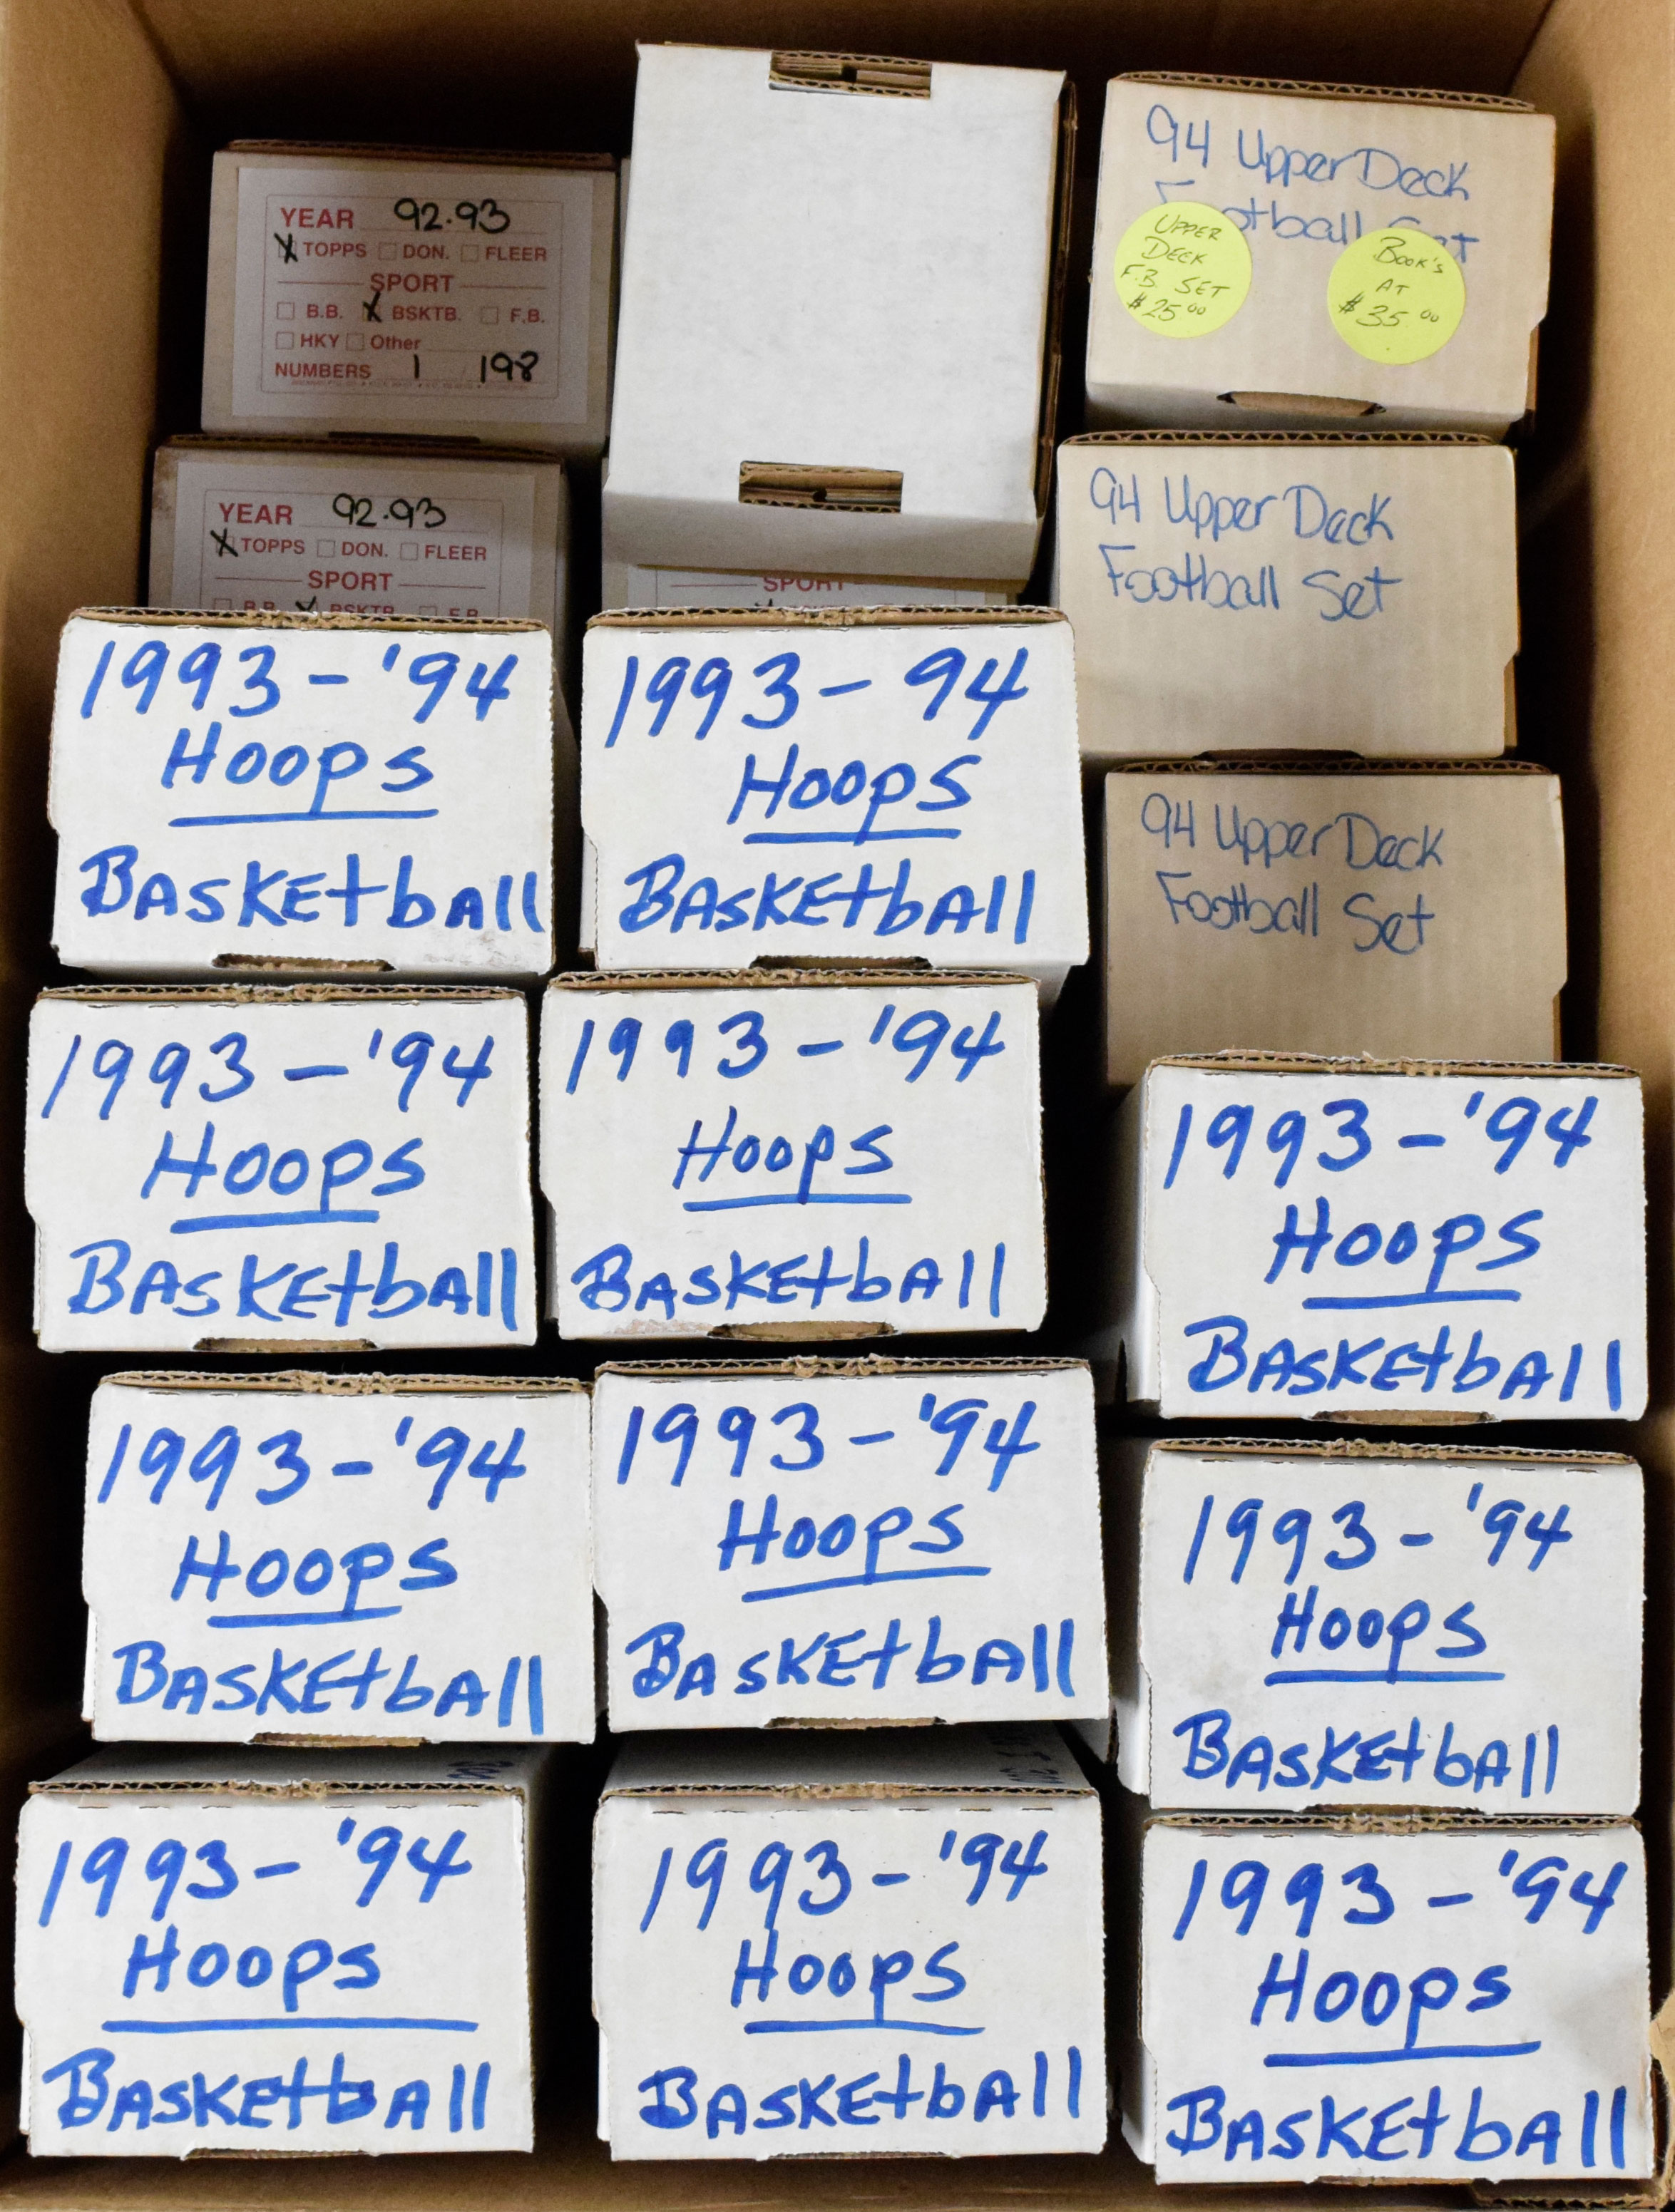 YEAR 92.93
X TOPPS DON. FLEER
SPORT
B.B. X BSKTB. F.B.
HKY Other
NUMBERS 1 198
94 Upper Deck
Football Set
UPPER
DECK
F.B. SET
$25.00
BOOK'S
AT
$35.00
YEAR 92.93
X TOPPS DON. FLEER
SPORT
B.B. X BSKTB. F.B.
SPORT
94 Upper Deck
Football Set
94 Upper Deck
Football Set
1993-'94
Hoops
BASKEtbAll
1993-94
Hoops
BASKEtbAll
1993-'94
Hoops
BASKEtbAll
1993-'94
Hoops
BASKEtbAll
1993-'94
Hoops
BASKEtbAll
1993-'94
Hoops
BASKEtbAll
1993-'94
Hoops
BASKEtbAll
1993-'94
Hoops
BASKEtbAll
1993-'94
Hoops
BASKEtbAll
1993-'94
Hoops
BASKEtbAll
1993-'94
Hoops
BASKEtbAll